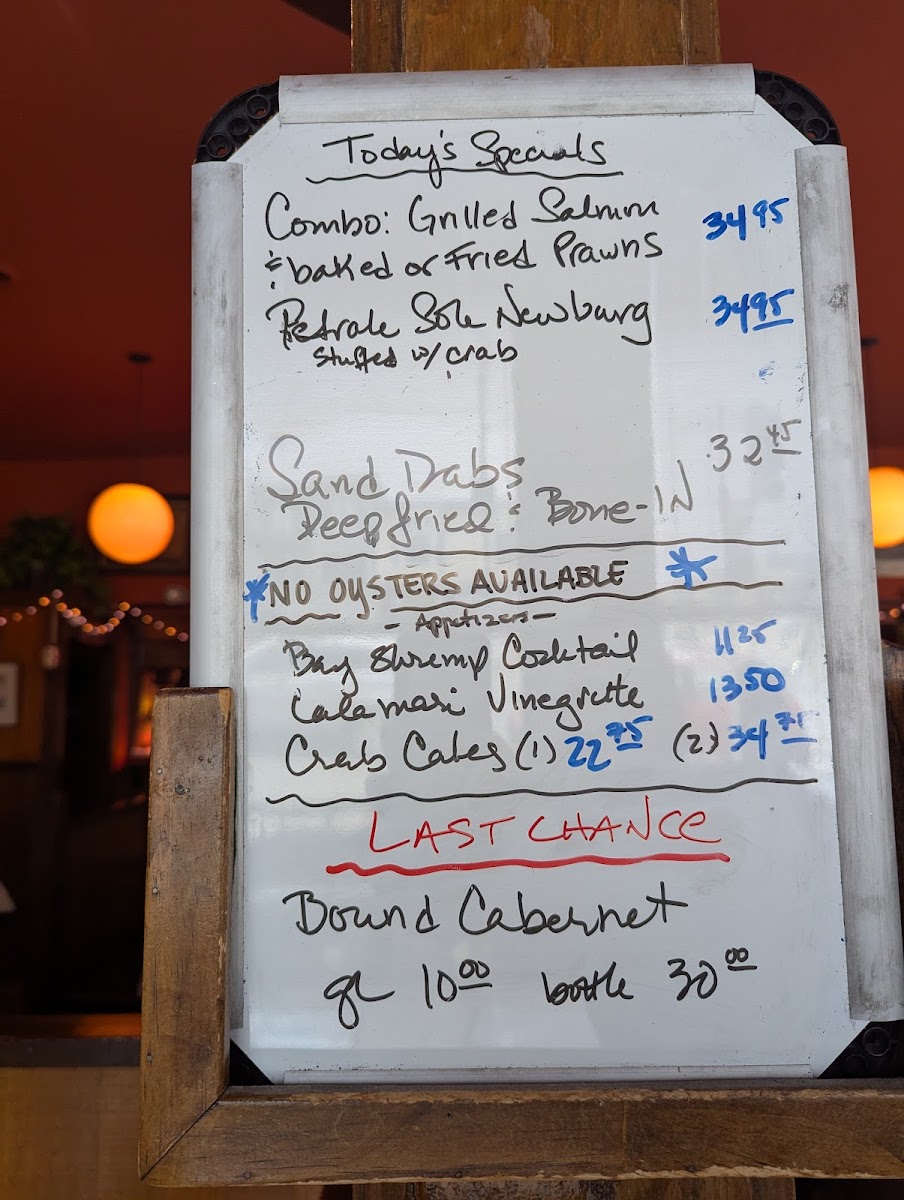 Today's Specials
Combo: Grilled Salmon 34 95
& baked or Fried Prawns
Petrale Sole Newburg 34 95
Stuffed w/ crab
Sand Dabs 32 45
Deep fried & Bone-IN
* NO OYSTERS AVAILABLE *
- Appetizers -
Bay Shrimp Cocktail 11 25
Calamari Vinegrette 13 50
Crab Cakes (1) 22 75 (2) 34 75
LAST CHANCE
Bound Cabernet
gl 10 00 bottle 30 00